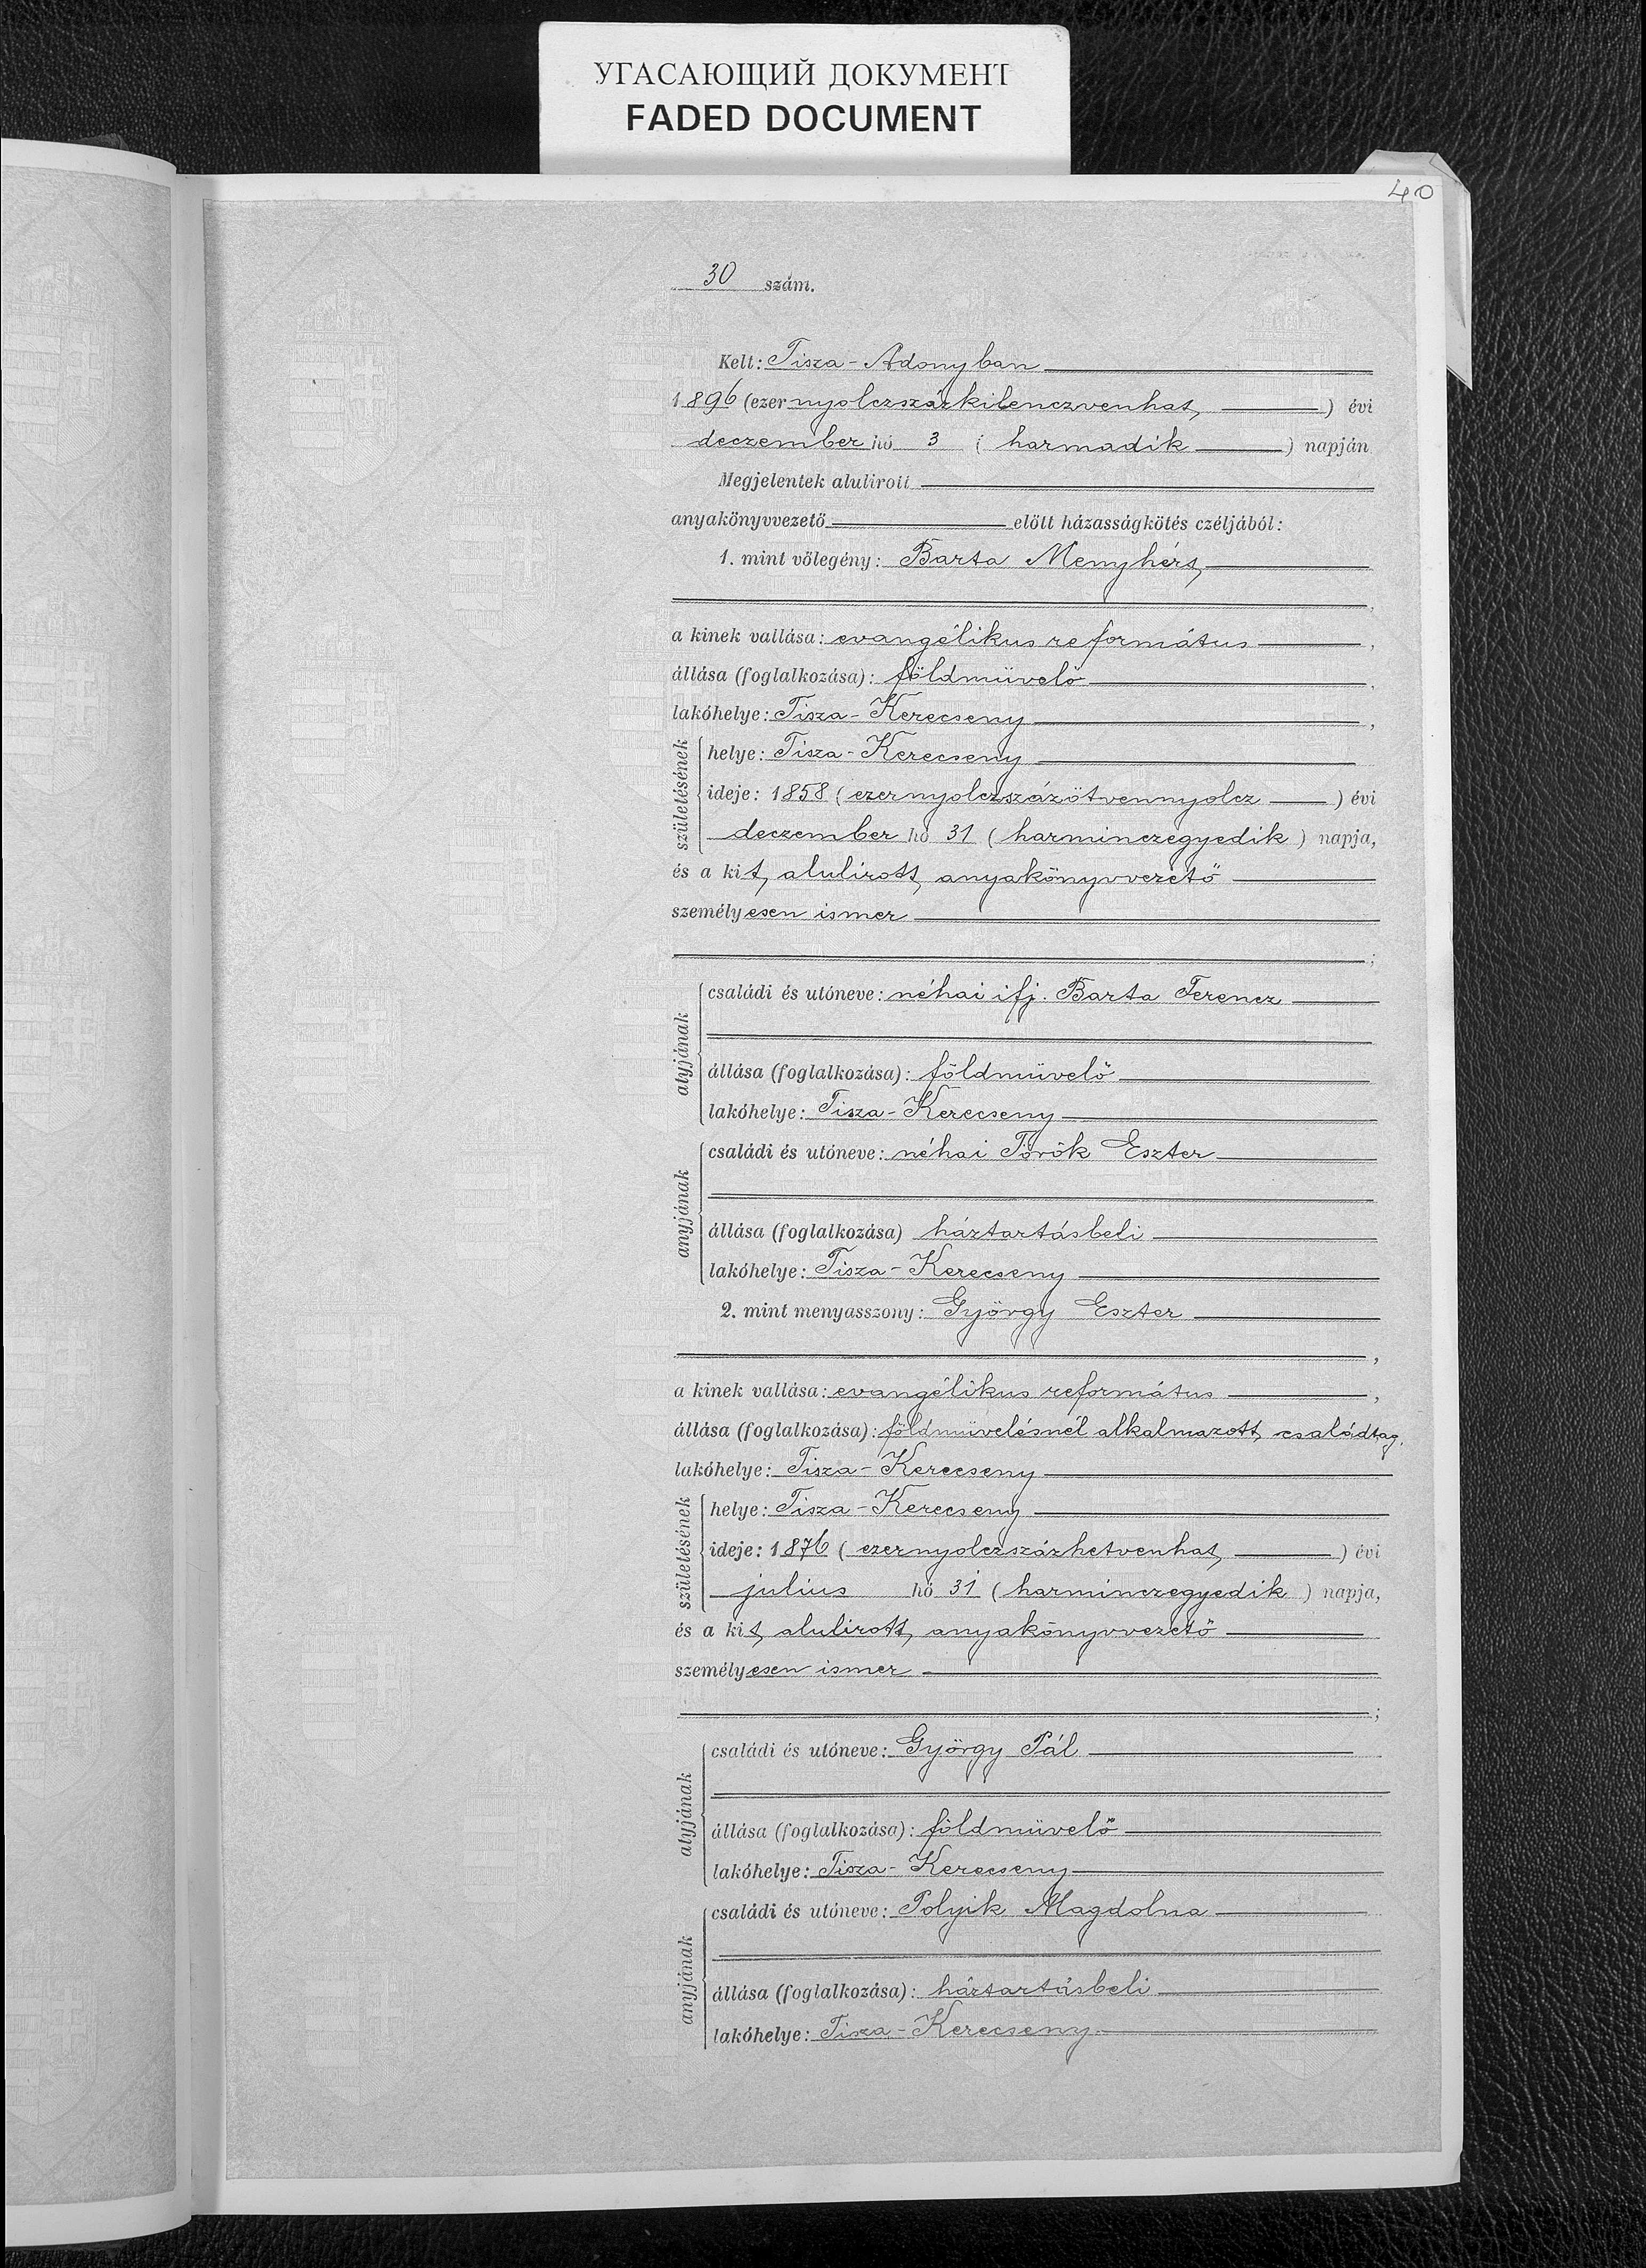 УГАСАЮЩИЙ ДОКУМЕНТ
FADED DOCUMENT
40
30 szám.
Kelt: Tisza-Adonyban
1896 (ezer nyolczszázkilenczvenhat) évi
deczember hó 3 (harmadik) napján
Megjelentek alulirott
anyakönyvvezető előtt házasságkötés czéljából:
1. mint vőlegény: Barta Menyhért,
a kinek vallása: evangélikus református,
állása (foglalkozása): földmüvelő,
lakóhelye: Tisza-Kerecseny,
születésének
helye: Tisza-Kerecseny
ideje: 1858 (ezernyolczszázötvennyolcz) évi
deczember hó 31 (harminczegyedik) napja,
és a kit, alulirott, anyakönyvvezető
személyesen ismer
;
atyjának
családi és utóneve: néhai ifj. Barta Ferencz
állása (foglalkozása): földmüvelő
lakóhelye: Tisza-Kerecseny
anyjának
családi és utóneve: néhai Török Eszter
állása (foglalkozása) háztartásbeli
lakóhelye: Tisza-Kerecseny
2. mint menyasszony: György Eszter
,
a kinek vallása: evangélikus református,
állása (foglalkozása): földmüvelésnél alkalmazott, családtag,
lakóhelye: Tisza-Kerecseny
születésének
helye: Tisza-Kerecseny
ideje: 1876 (ezernyolczszázhetvenhat) évi
julius hó 31 (harminczegyedik) napja,
és a kit, alulirott, anyakönyvvezető
személyesen ismer
;
atyjának
családi és utóneve: György Pál
állása (foglalkozása): földmüvelő
lakóhelye: Tisza-Kerecseny
anyjának
családi és utóneve: Polyik Magdolna
állása (foglalkozása): háztartásbeli
lakóhelye: Tisza-Kerecseny